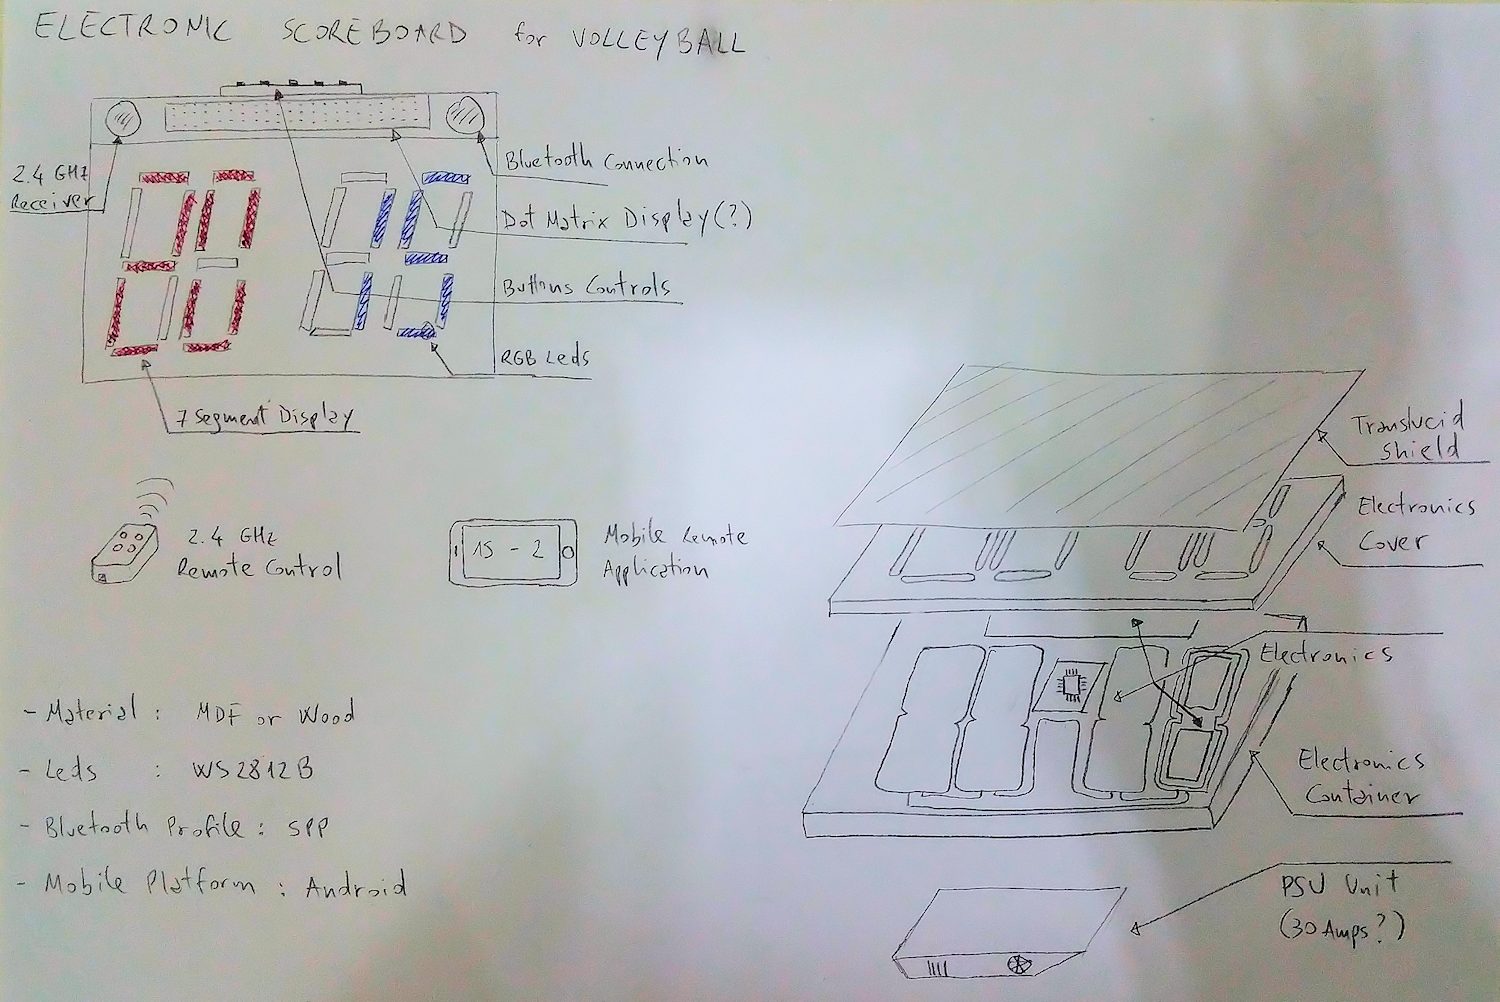 ELECTRONIC SCOREBOARD for VOLLEYBALL
2.4 GHz
Receiver
Bluetooth Connection
Dot Matrix Display (?)
Buttons Controls
RGB Leds
7 Segment Display
2.4 GHz
Remote Control
15 - 2
Mobile Remote
Application
Translucid
Shield
Electronics
Cover
Electronics
Electronics
Container
PSU Unit
(30 Amps?)
- Material : MDF or Wood
- Leds : WS2812B
- Bluetooth Profile : SPP
- Mobile Platform : Android